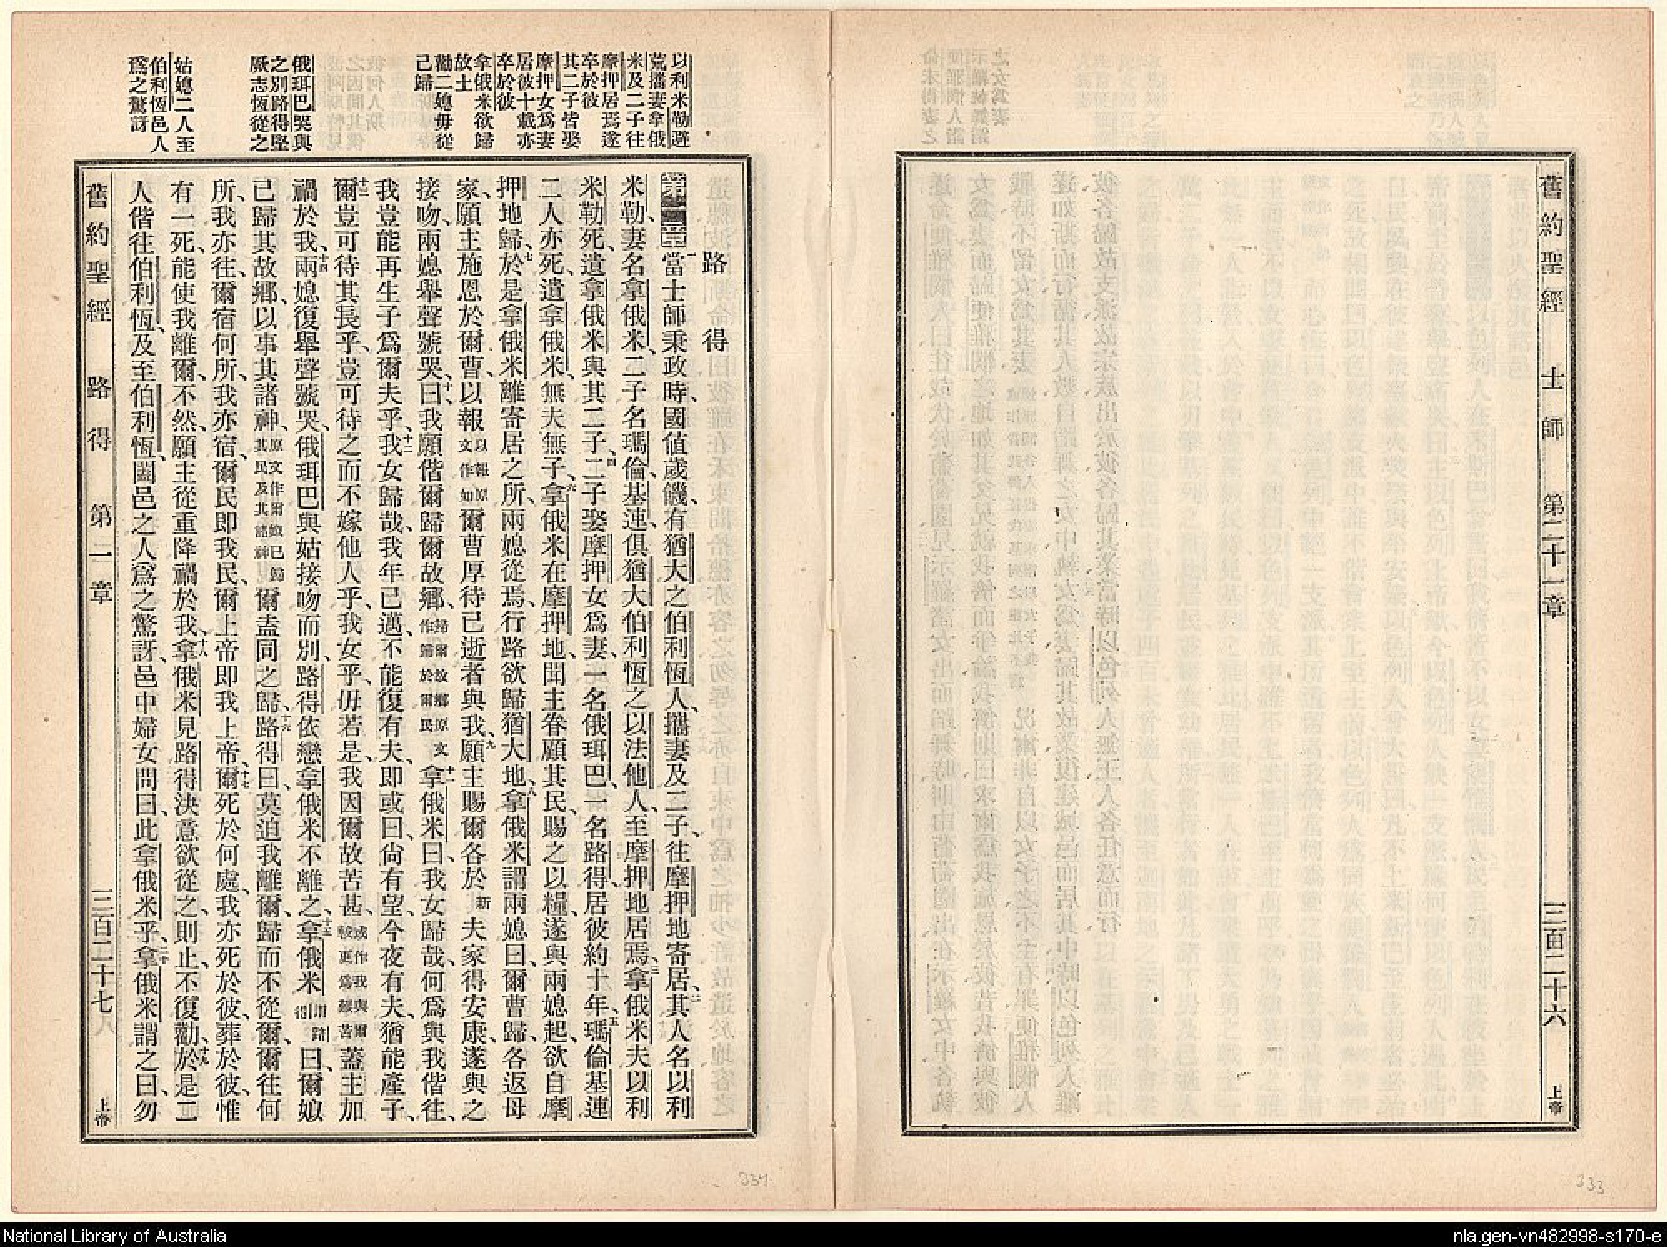 舊約聖經 士師 第二十一章 三百二十六 上帝
路得
以利米勒避
荒攜妻拿俄
米及二子往
摩押居焉遂
卒於彼
其二子皆娶
摩押女爲妻
居彼十載亦
卒於彼
拿俄米欲歸
故土
勸二媳毋從
己歸
俄珥巴哭與
之別路得堅
厥志恆從之
姑媳二人至
伯利恆邑人
爲之驚訝
第一章 一 當士師秉政時、國值歲饑、有猶大之伯利恆人、攜妻及二子、往摩押地寄居、二 其人名以利
米勒、妻名拿俄米、二子名瑪倫、基連、俱猶大伯利恆之以法他人、至摩押地居焉、三 拿俄米夫以利
米勒死、遺拿俄米與其二子、四 二子娶摩押女爲妻、一名俄珥巴、一名路得、居彼約十年、五 瑪倫基連
二人亦死、遺拿俄米、無夫無子、六 拿俄米在摩押地、聞主眷顧其民、賜之以糧、遂與兩媳起、欲自摩
押地歸、七 於是拿俄米離寄居之所、兩媳從焉、行路欲歸猶大地、八 拿俄米謂兩媳曰、爾曹歸、各返母
家、願主施恩於爾曹、以報 以報原文作如 爾曹厚待已逝者與我、九 願主賜爾各於 新 夫家得安康、遂與之
接吻、兩媳舉聲號哭、十 曰、我願偕爾歸爾故鄉、歸爾故鄉原文作歸於爾民 十一 拿俄米曰、我女歸哉、何爲與我偕往、
我豈能再生子爲爾夫乎、十二 我女歸哉、我年已邁、不能復有夫、即或曰、尚有望、今夜有夫、猶能產子、
十三 爾豈可待其長乎、豈可待之而不嫁他人乎、我女乎、毋若是、我因爾故苦甚、或作我與爾較更爲艱苦 蓋主加
禍於我、十四 兩媳復舉聲號哭、俄珥巴與姑接吻而別、路得依戀拿俄米不離之、十五 拿俄米 謂路得 曰、爾娘
已歸其故鄉、以事其諸神、原文作爾娘已歸其民及其諸神 爾盍同之歸、十六 路得曰、莫迫我離爾、歸而不從爾、爾往何
所、我亦往、爾宿何所、我亦宿、爾民即我民、爾上帝即我上帝、十七 爾死於何處、我亦死於彼、葬於彼、惟
有一死、能使我離爾、不然、願主從重降禍於我、十八 拿俄米見路得決意欲從之、則止不復勸、十九 於是二
人偕往伯利恆、及至伯利恆、闔邑之人爲之驚訝、邑中婦女問曰、此拿俄米乎、二十 拿俄米謂之曰、勿
舊約聖經 路得 第一章 三百二十七 上帝
334
333
National Library of Australia
nla.gen-vn482998-s170-e